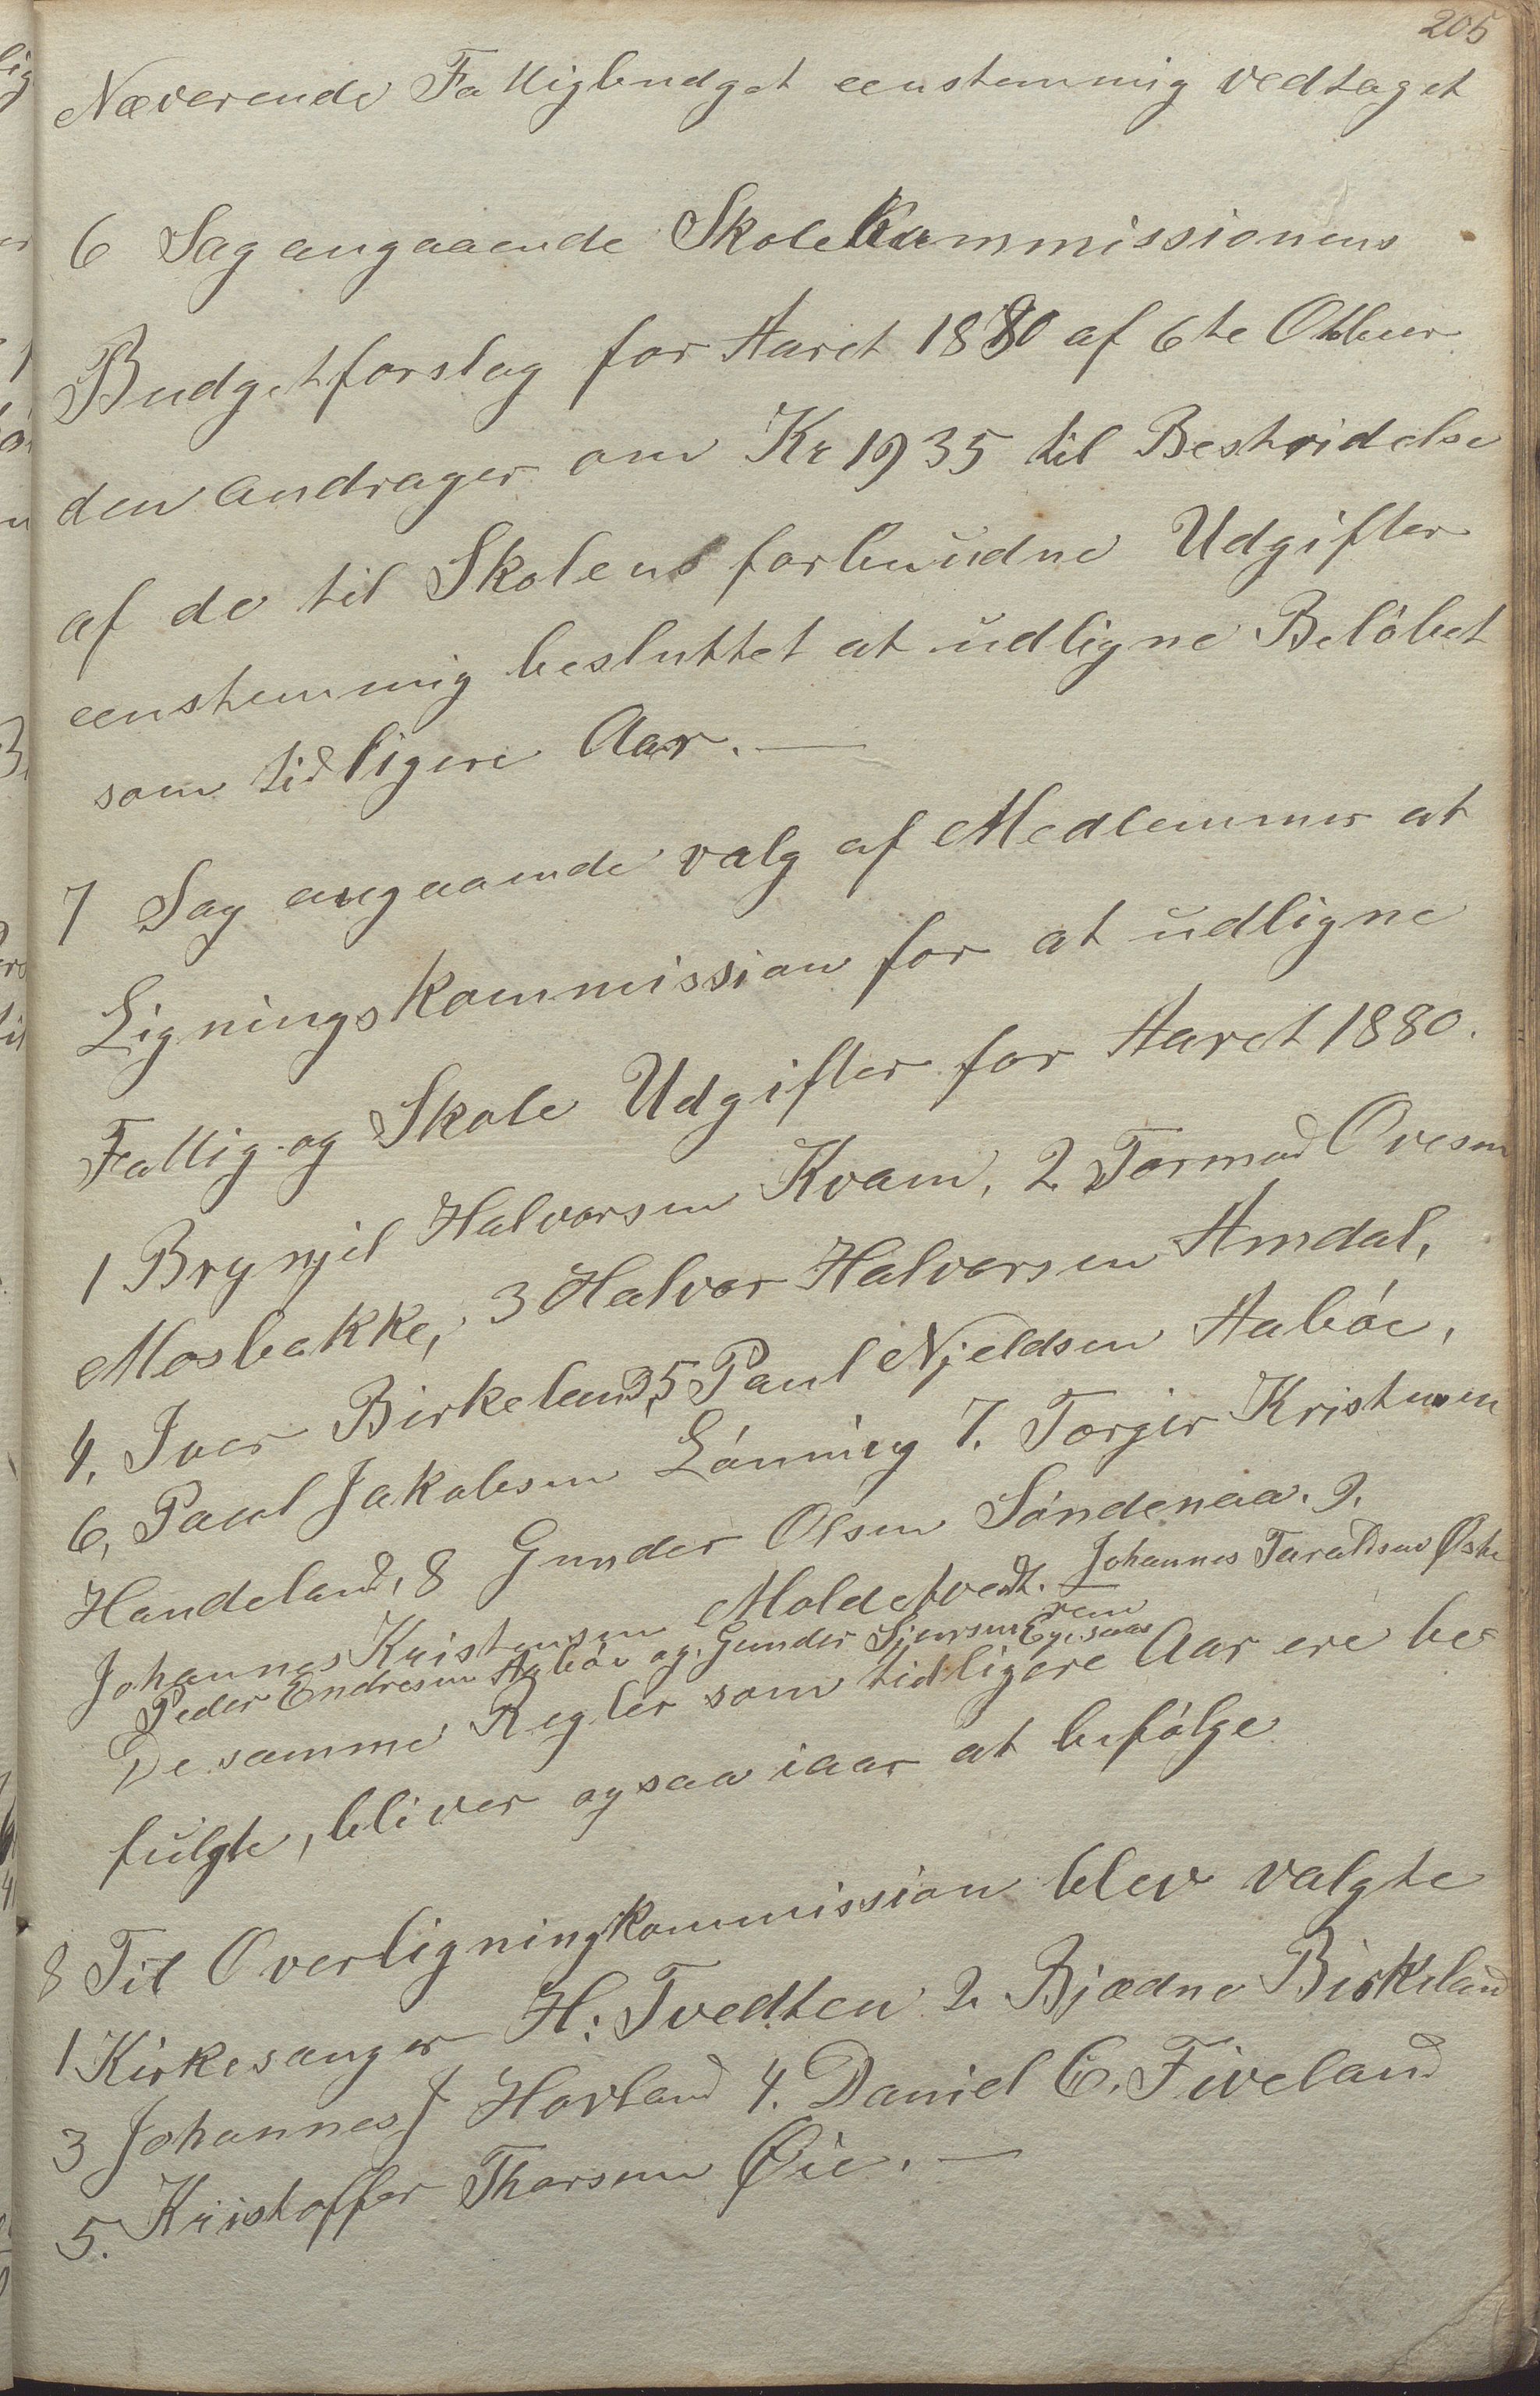 205
Næverende Fattigbudget eenstemmig vedtaget
6 Sag angaaende Skolekommissionens
Budgetforslag for Aaret 1880 af 6te Oktber
den andrager om Kr 1935 til Bestridelse
af de til Skolens forbundne Udgifter
eenstemmig besluttet at udligne Beløbet
som tidligere Aar. —
7 Sag angaaende valg af Medlemmer at
Ligningskommission for at udligne
Fattig og Skole Udgifter for Aaret 1880.
1 Brynjel Halvorsen Kvam, 2 Tormod Ovesen
Mosbakke, 3 Halvor Halvorsen Amdal,
4, Iver Birkeland, 5 Paul Njeldsen Aabøe,
6, Paul Jakobsen Lønning 7. Torger Kristensen
Handeland, 8 Gunder Olsen Søndenaa. 9.
Johannes Kristensen Moldetvedt. Johannes Taraldsen Øste
rem
Peder Endresen Aabøe og Gunder
De samme Regler som tidligere Aar ere be
fulgte, bliver ogsaa iaar at befølge
8 Til Overligningkommission blev valgte
1 Kirkesanger H: Tvedten 2 Bjædne Birkeland
3 Johannes J Hovland 4. Daniel E. Fiveland
5. Kristoffer Thorsen Øie. —